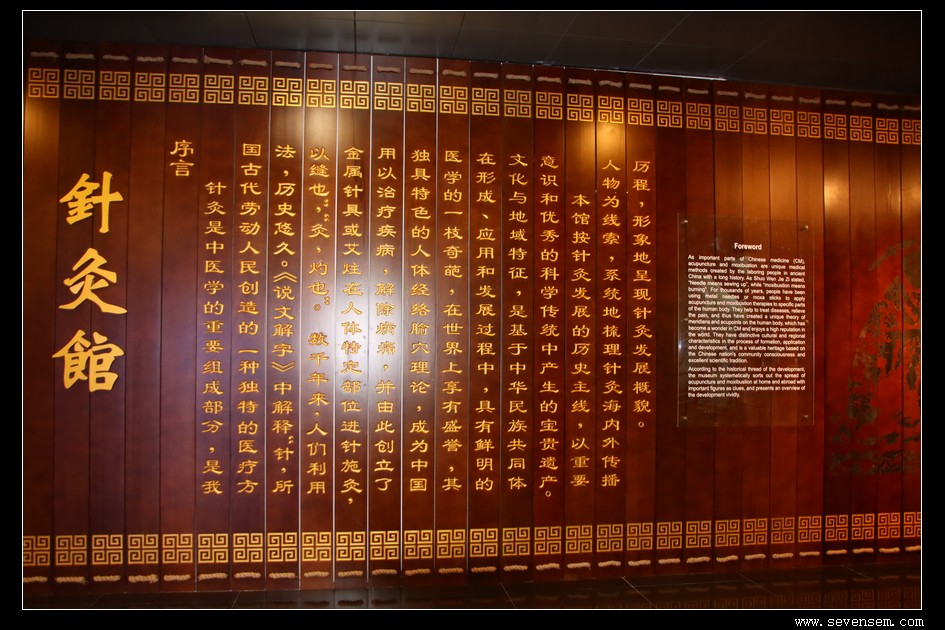 針灸館
序言
针灸是中医学的重要组成部分，是我
国古代劳动人民创造的一种独特的医疗方
法，历史悠久。《说文解字》中解释“针，所
以缝也”，“灸，灼也”。数千年来，人们利用
金属针具或艾炷在人体特定部位进针施灸，
用以治疗疾病，解除病痛，并由此创立了
独具特色的人体经络腧穴理论，成为中国
医学的一枝奇葩，在世界上享有盛誉，其
在形成、应用和发展过程中，具有鲜明的
文化与地域特征，是基于中华民族共同体
意识和优秀的科学传统中产生的宝贵遗产。
本馆按针灸发展的历史主线，以重要
人物为线索，系统地梳理针灸海内外传播
历程，形象地呈现针灸发展概貌。
Foreword
As important parts of Chinese medicine (CM),
acupuncture and moxibustion are unique medical
methods created by the laboring people in ancient
China with a long history. As Shuo Wen Jie Zi stated,
"Needle means sewing up", while "moxibustion means
burning". For thousands of years, people have been
using metal needles or moxa sticks to apply
acupuncture and moxibustion therapies to specific parts
of the human body. They help to treat diseases, relieve
the pain, and thus have created a unique theory of
meridians and acupoints on the human body, which has
become a wonder in CM and enjoys a high reputation in
the world. They have distinctive cultural and regional
characteristics in the process of formation, application
and development, and is a valuable heritage based on
the Chinese nation's community consciousness and
excellent scientific tradition.
According to the historical thread of the development,
the museum systematically sorts out the spread of
acupuncture and moxibustion at home and abroad with
important figures as clues, and presents an overview of
the development vividly.
www.sevensem.com